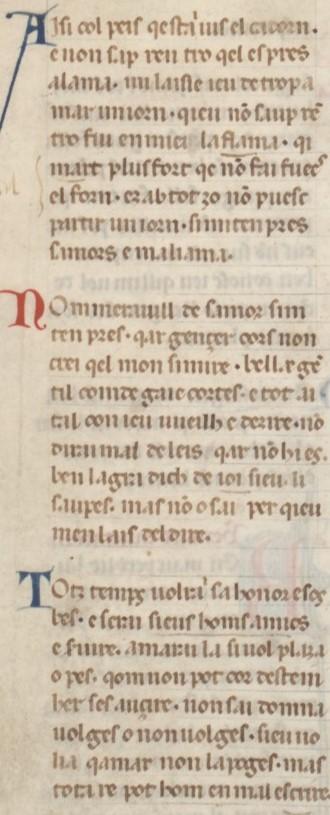 Aisi col peis qestruis el cadorn.
e non sap ren tro qel es pres
alama. mi laissie ieu de tropa
mar un iorn. qieu nō saup rē
tro fui en miei la flama. qi
mart plus fort qe nō fai fuecs
el forn. er ab tot zo nō puesc
partir un iorn. si miten pres
samors e maliama.
Nom merauill de samor sim
ten pres. qar gençer cors non
crei qel mon si mire. bell. e gē
til coinde gaie cortes. e tot ai
tal con ieu uueilh e desire. nō
dirai mal de leis qar nō hi es.
ben lagrai dich de ioi sieu li
saupes. mas nō o sai per qieu
men lais del dire.
Totz temps uolrai sa honor e ses
bes. e serai sieus homs amics
e siruire. amarai la si uol plaia
o pes. qom non pot cor destrein
her ses aucire. non sai domna
uolges o non uolges. sieu uo
lia qamar non la poges. mas
tota re pot hom en mal escrire.